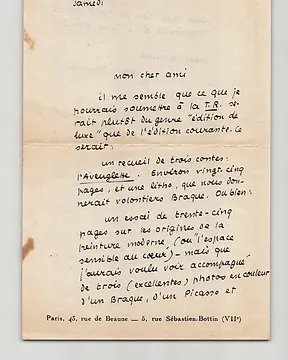 samedi
mon cher ami
il me semble que ce que je
pourrais soumettre à la T.R. se-
rait plutôt du genre "édition de
luxe" que de l'édition courante. Ce
serait:
un recueil de trois contes:
l'Aveuglette. Environ vingt-cinq
pages, et une litho, que nous don-
nerait volontiers Braque. Ou bien:
un essai de trente-cinq
pages sur les origines de la
peinture moderne, (ou "l'espace
sensible au cœur) – mais que
j'aurais voulu voir accompagné
de trois (excellentes) photos en couleur
d'un Braque, d'un Picasso et
Paris, 43, rue de Beaune — 5, rue Sébastien-Bottin (VIIe)